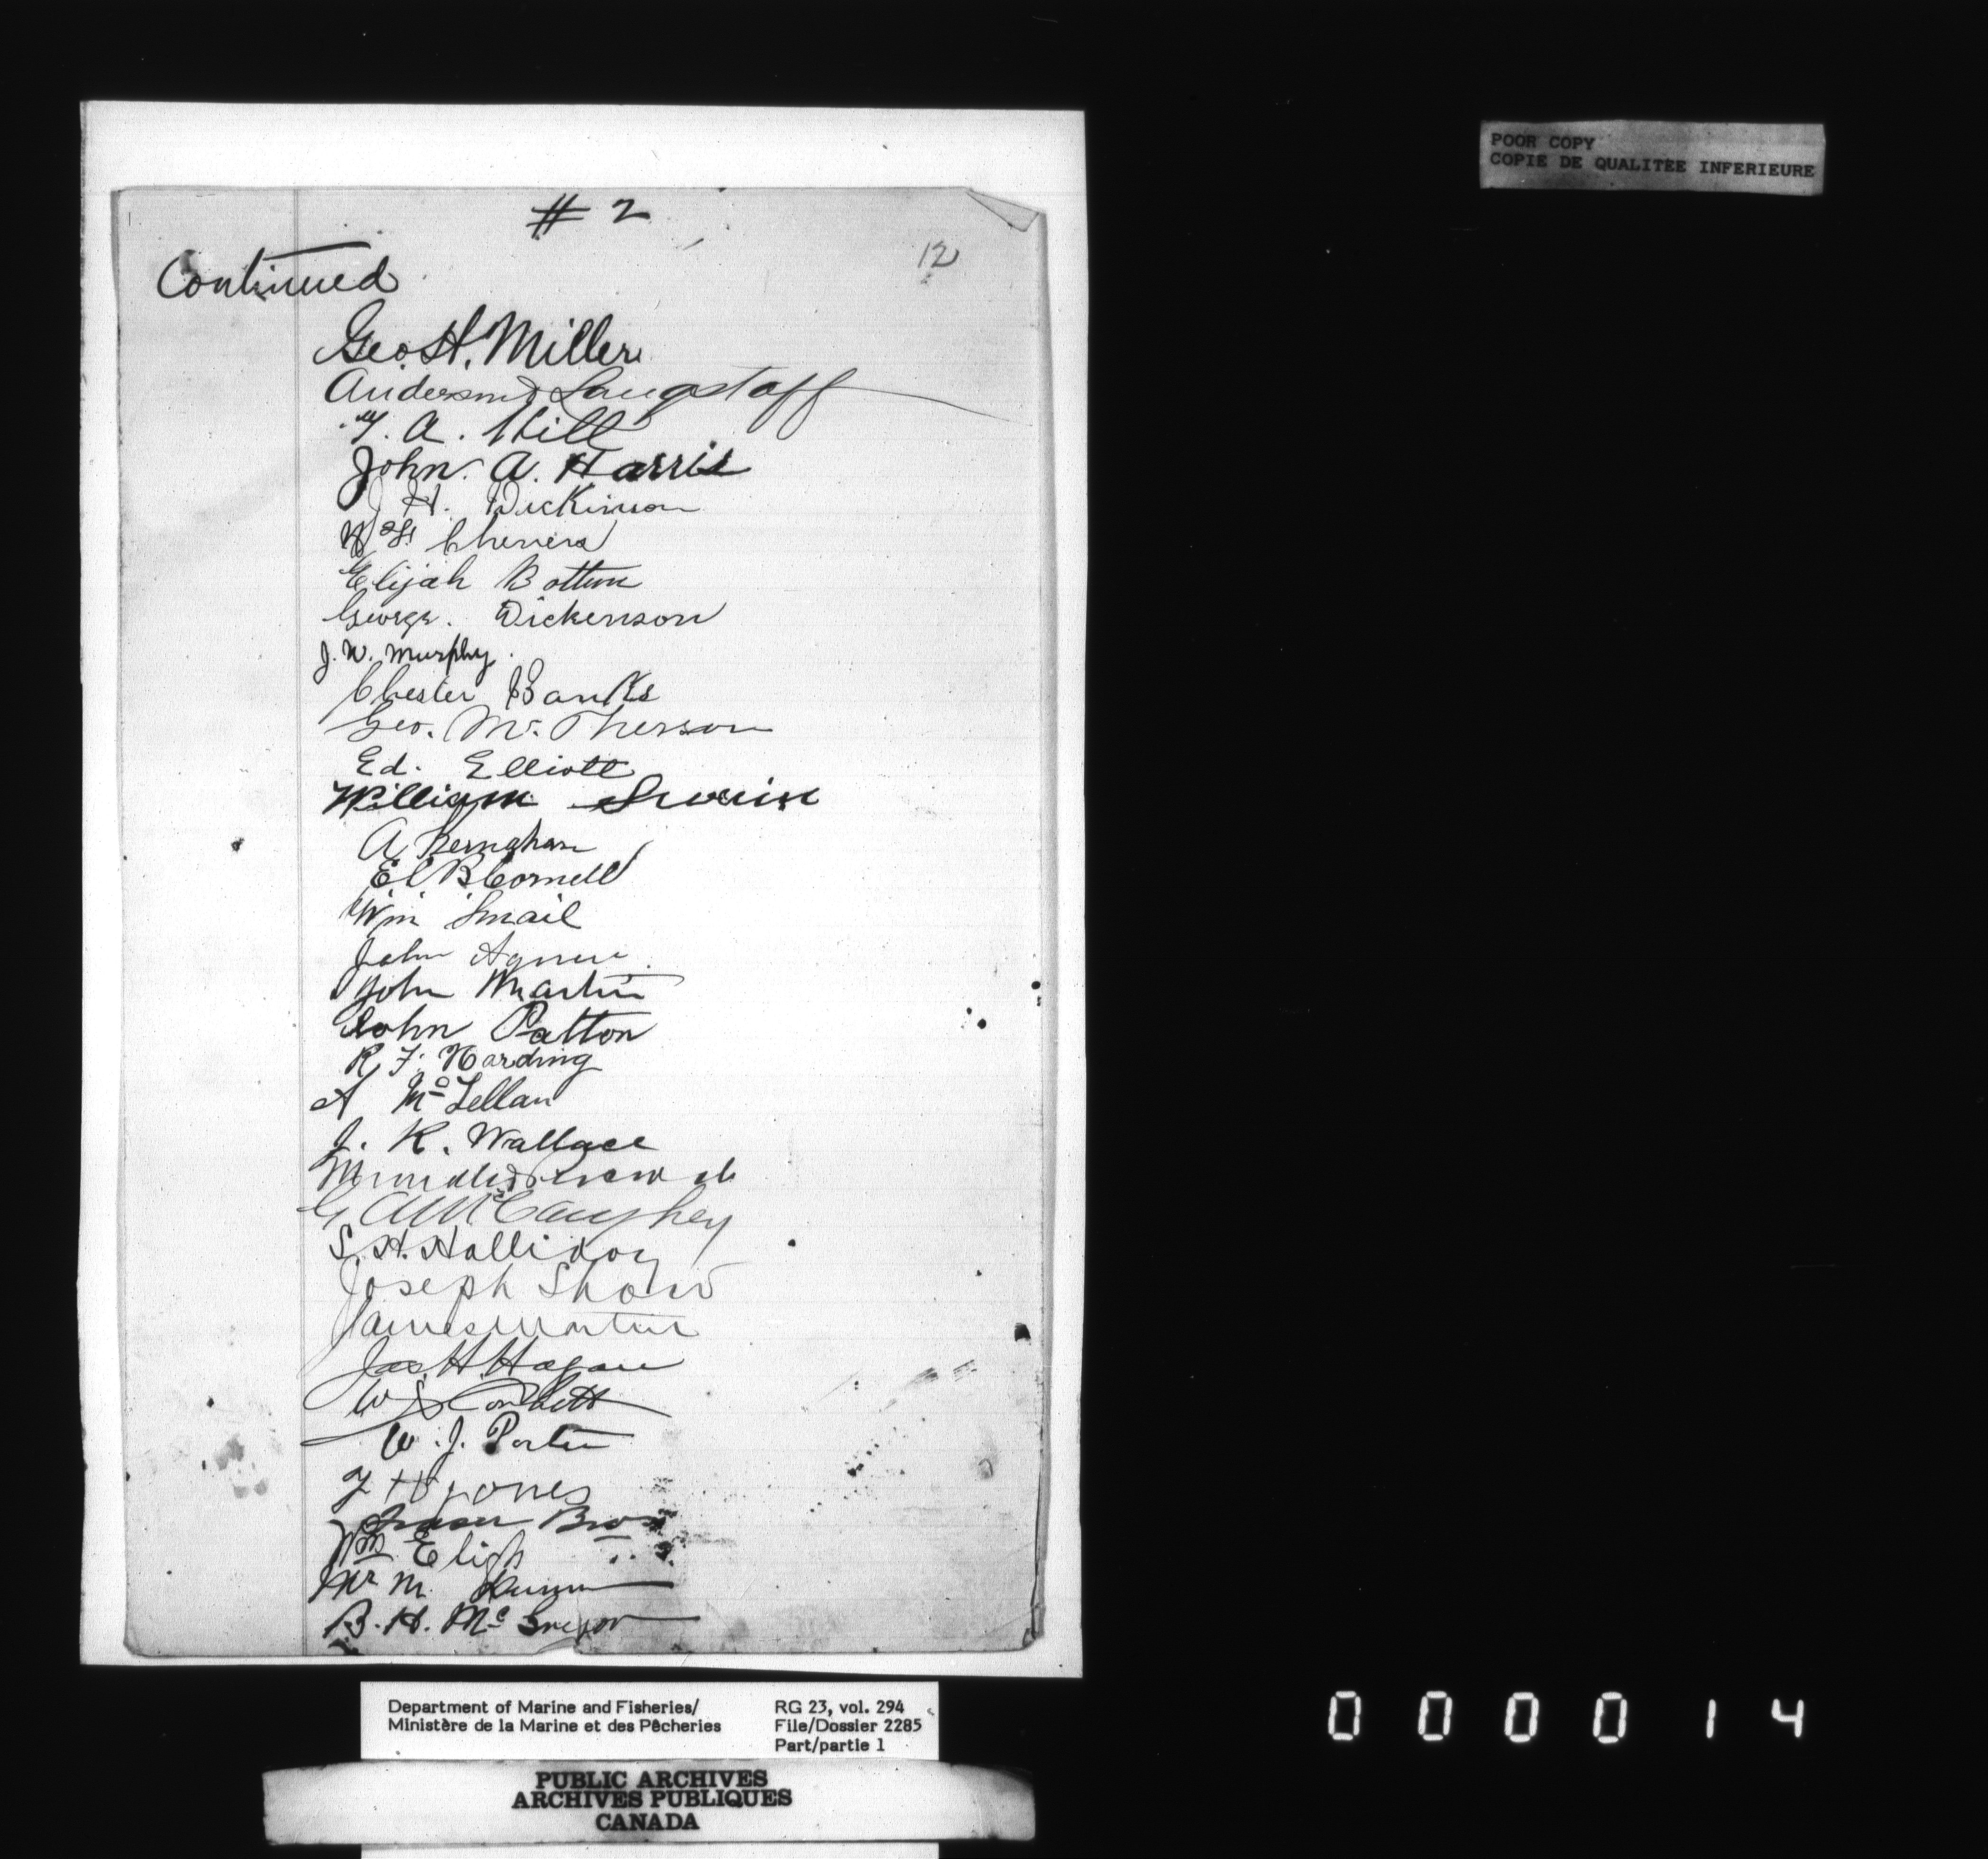 POOR COPY
COPIE DE QUALITEE INFERIEURE
# 2
12
Continued
Geo. H. Miller
Anderson Langstaff
A. Hill
John. A. Harris
J H. Dickinson
Elijah Bottum
George. Dickenson
J. W. Murphy.
Chester Banks
Geo. Mc. Pherson
Ed. Elliott
William
A
E C B Cornell
Wm Smail
John Agnew.
John Martin
John Patton
R. F. Harding
A McLellan
J. K. Wallace
G A McCaughey
S. H. Halliday
Joseph Shaw
James Martin
Jas. H. Hagan
W S Corbett
W. J. Porter
Jones
Fraser Bros
Wm Eligh
M.
B. H. McGregor
Department of Marine and Fisheries/
Ministère de la Marine et des Pêcheries
RG 23, vol. 294
File/Dossier 2285
Part/partie 1
PUBLIC ARCHIVES
ARCHIVES PUBLIQUES
CANADA
000014